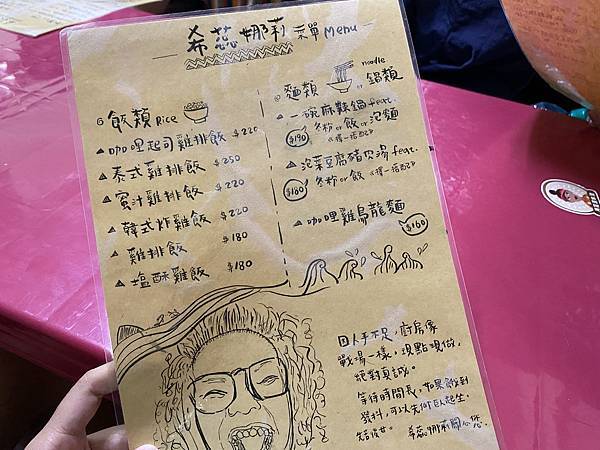 希蕊娜莉 菜單 Menu
飯類 Rice
咖哩起司雞排飯 $220
泰式雞排飯 $250
蜜汁雞排飯 $220
韓式炸雞飯 $220
雞排飯 $180
塩酥雞飯 $180
麵類 noodle or 鍋類
一碗麻辣鍋 feat.
$190 冬粉 or 飯 or 泡麵
<擇一搭配>
泡菜豆腐豬肉湯 feat.
$160 冬粉 or 飯 <擇一搭配>
咖哩雞烏龍麵
$160
因人手不足，廚房像
戰場一樣，現點現做，
絕對真誠。
等待時間長，如果餓到
發抖，可以先伏臥起坐
希蕊娜莉關心您。